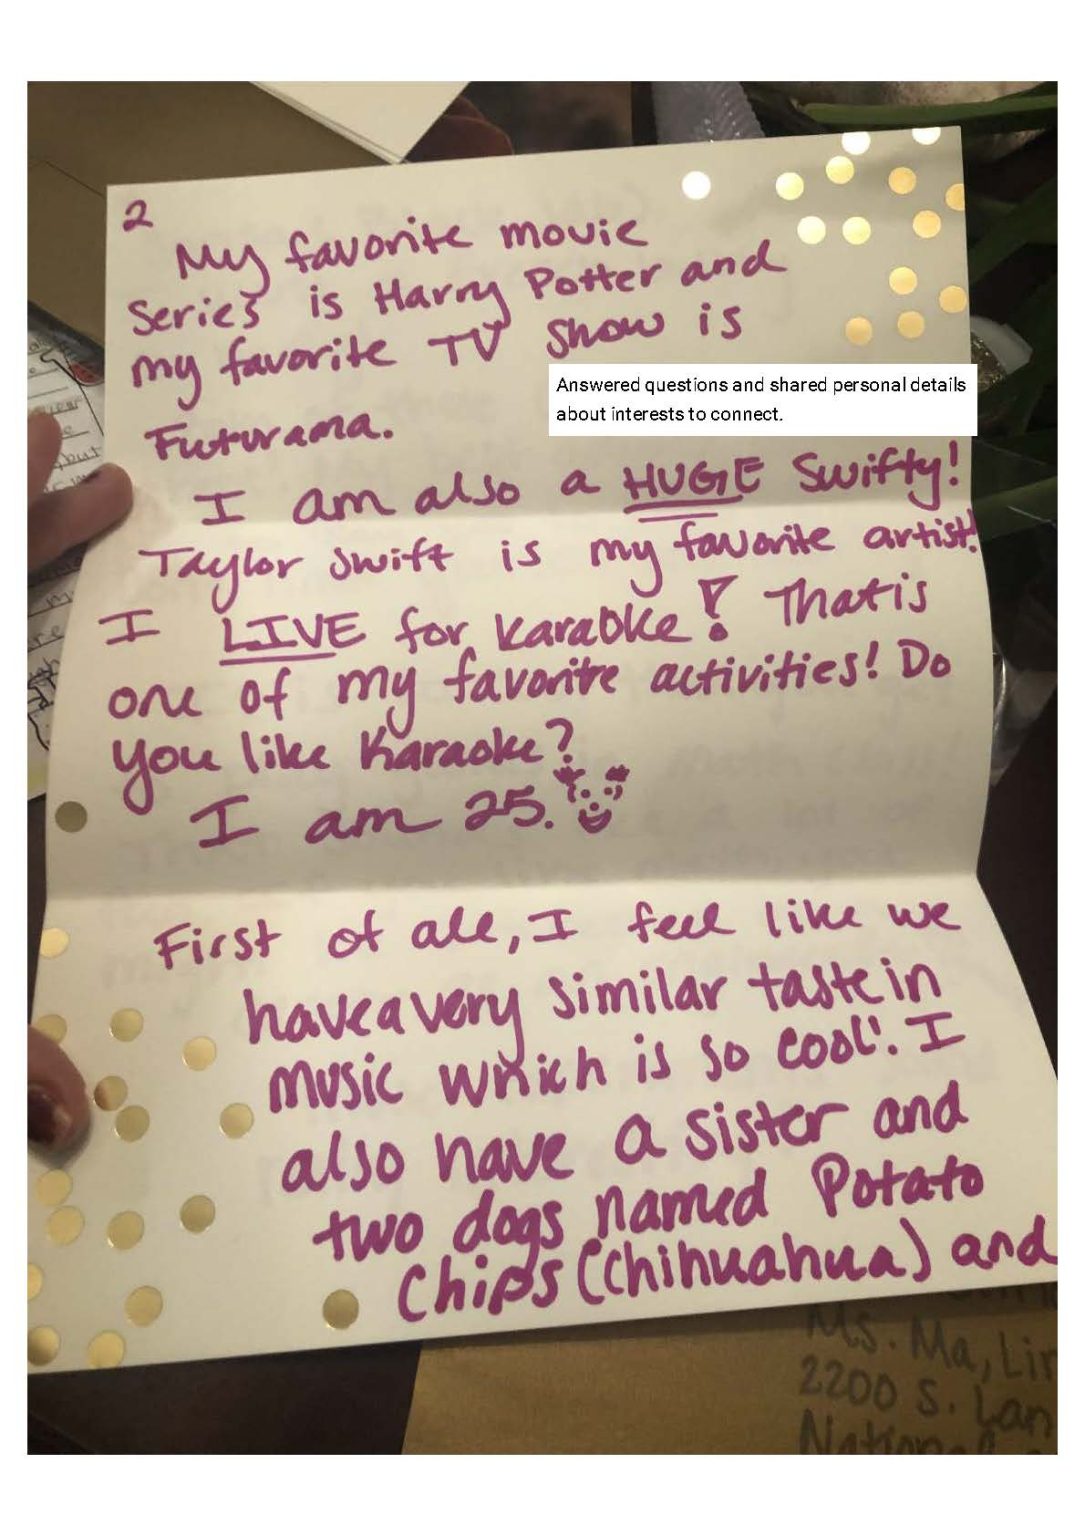 2
My favorite movie
series is Harry Potter and
my favorite TV show is
Answered questions and shared personal details
about interests to connect.
Futurama.
I am also a HUGE Swifty!
Taylor Swift is my favorite artist!
I LIVE for Karaoke! That is
one of my favorite activities! Do
you like Karaoke?
I am 25.
First of all, I feel like we
have a very similar taste in
music which is so cool! I
also have a sister and
two dogs named Potato
Chips (Chihuahua) and
Ms. Ma, Lin
2200 S. Lan
National